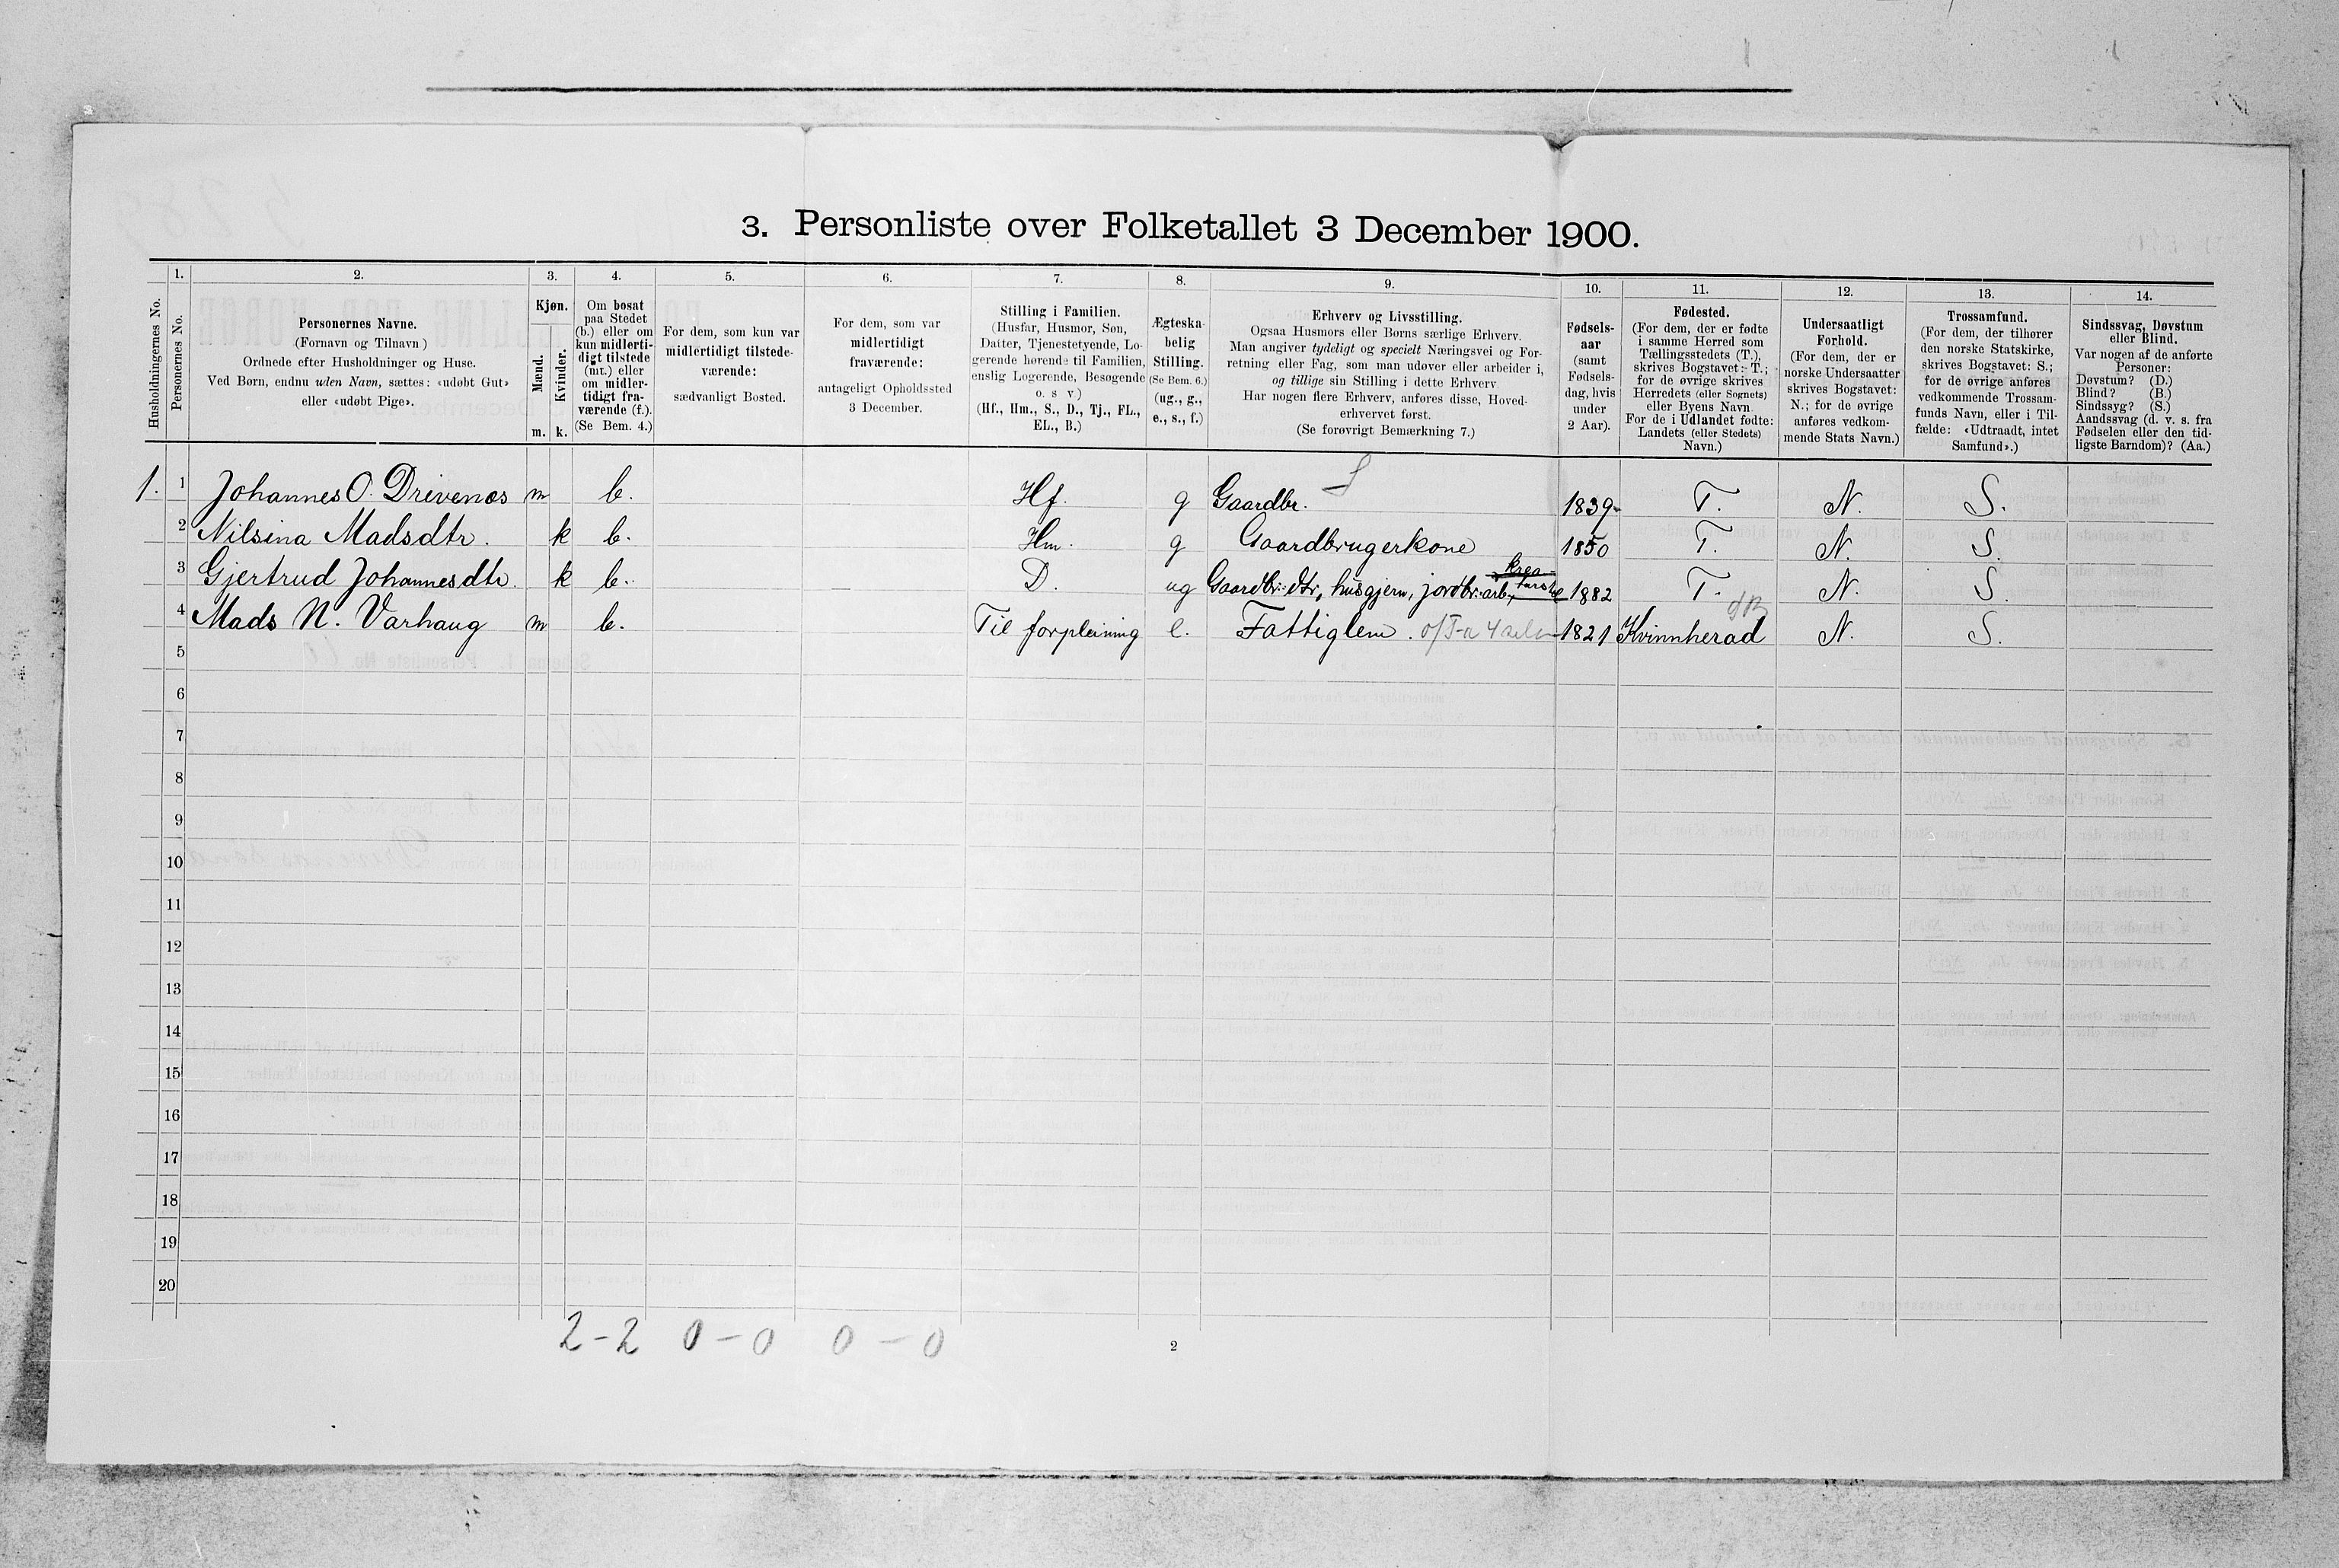 3. Personliste over Folketallet 3 December 1900.
1. 2. 3. 4. 5. 6. 7. 8. 9. 10. 11. 12. 13. 14.
Husholdningernes No.
Personernes No.
Personernes Navne.
(Fornavn og Tilnavn )
Ordnede efter Husholdninger og Huse.
Ved Børn, endnu uden Navn, sættes: «udøbt Gut»
eller «udøbt Pige».
Kjøn.
Mænd.
Kvinder.
m. k.
Om bosat
paa Stedet
(b.) eller om
kun midlerti-
digt tilstede
(mt.) eller
om midler-
tidigt fra-
værende (f.).
(Se Bem. 4.)
For dem, som kun var
midlertidigt tilstede-
værende:
sædvanligt Bosted.
For dem, som var
midlertidigt
fraværende:
antageligt Opholdssted
3 December.
Stilling i Familien.
(Husfar, Husmor, Søn,
Datter, Tjenestetyende, Lo-
gerende hørende til Familien,
enslig Logerende, Besøgende
o. s v )
(Hf., Hm., S., D., Tj., FL.,
EL., B.)
Ægteska-
belig
Stilling.
(Se Bem. 6.)
(ug., g.,
e., s., f.)
Erhverv og Livsstilling.
Ogsaa Husmors eller Børns særlige Erhverv.
Man angiver tydeligt og specielt Næringsvei og For-
retning eller Fag, som man udøver eller arbeider i,
og tillige sin Stilling i dette Erhverv
Har nogen flere Erhverv, anføres disse, Hoved-
erhvervet først.
(Se forøvrigt Bemærkning 7.)
Fødsels-
aar
(samt
Fødsels-
dag, hvis
under
2 Aar).
Fødested.
(For dem, der er fødte
i samme Herred som
Tællingsstedets (T.),
skrives Bogstavet: T.;
for de øvrige skrives
Herredets (eller Sognets)
eller Byens Navn
For de i Udlandet fødte:
Landets (eller Stedets)
Navn.)
Undersaatlig
Forhold.
(For dem, der er
norske Undersaatter
skrives Bogstavet:
N.; for de øvrige
anføres vedkom-
mende Stats Navn.)
Trossamfund.
(For dem, der tilhører
den norske Statskirke,
skrives Bogstavet: S.;
for de øvrige anføres
vedkommende Trossam-
funds Navn, eller i Til-
fælde: «Udtraadt, intet
Samfund».)
Sindssvag, Døvstum
eller Blind.
Var nogen af de anførte
Personer:
Døvstum? (D.)
Blind? (B.)
Sindssyg? (S.)
Aandssvag (d. v. s. fra
Fødselen eller den tid-
ligste Barndom)? (Aa.)
1. 1 Johannes O. Drivenes m b. Hf. g Gaardbr. 1839 T. N. S.
2 Nilsina Madsdtr. k b. Hm. g Gaardbrugerkone 1850 T. N. S.
3 Gjertrud Johannesdtr. k b. D. ug Gaardbr. dtr, husgjern, jordbr. arb, 1882 T. N. S.
4 Mads N. Varhaug m b. Til forpleining e. Fattiglem. 1821 Kvinnherad N. S.
5
6
7
8
9
10
11
12
13
14
15
16
17
18
19
20
2-2 0-0 0-0
2